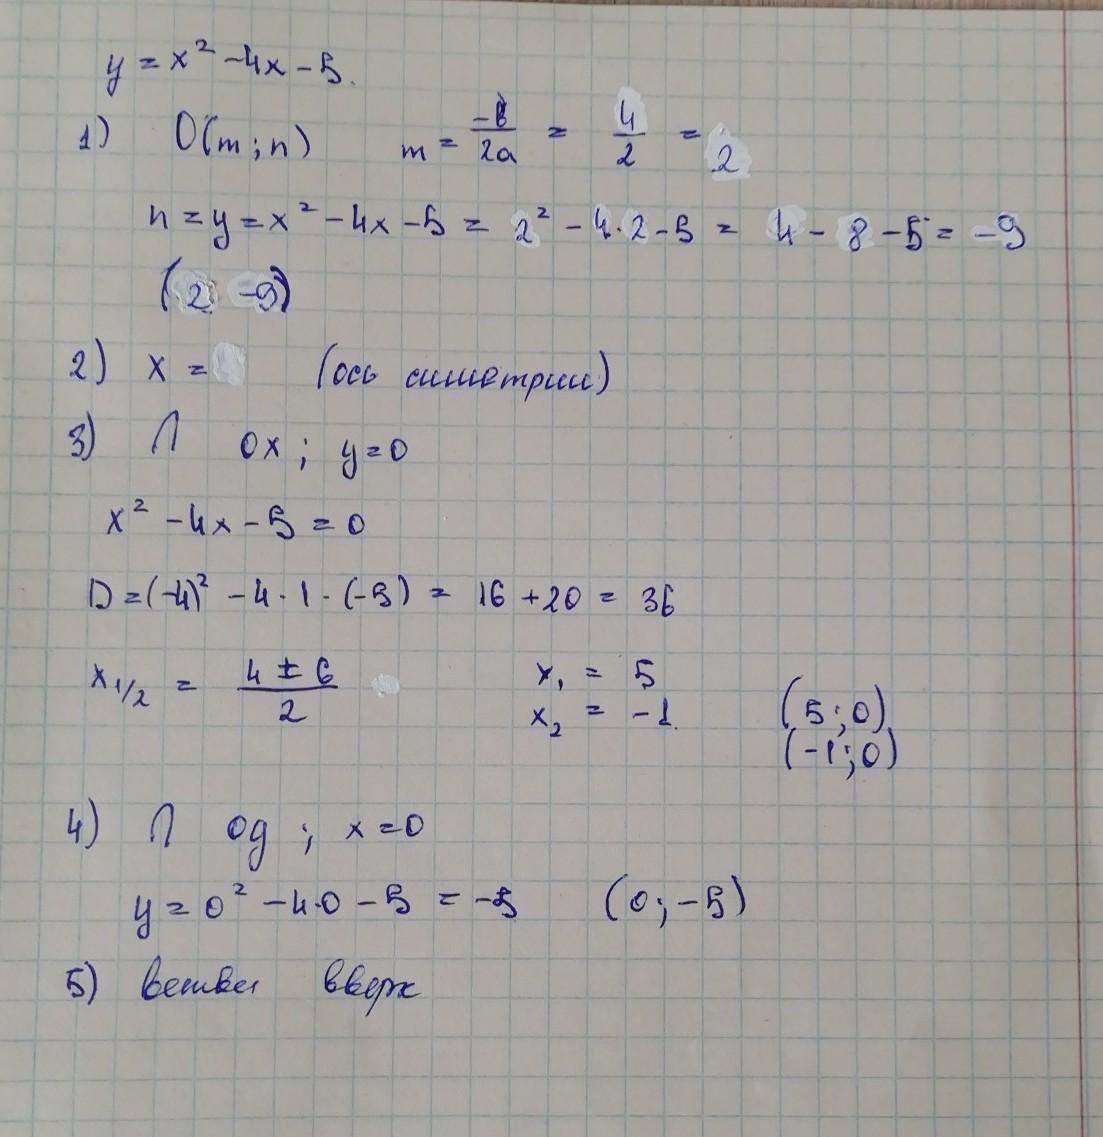 y = x² - 4x - 5.
1) O(m; n) m = -b/2a = 4/2 = 2
n = y = x² - 4x - 5 = 2² - 4·2 - 5 = 4 - 8 - 5 = -9
(2 -9)
2) x = (ось симетрии)
3) ∩ ox; y=0
x² - 4x - 5 = 0
D = (-4)² - 4·1·(-5) = 16 + 20 = 36
x₁/₂ = 4 ± 6/2 x₁ = 5 (5;0)
x₂ = -1. (-1;0)
4) ∩ oy; x=0
y = 0² - 4·0 - 5 = -5 (0; -5)
5) ветви вверх